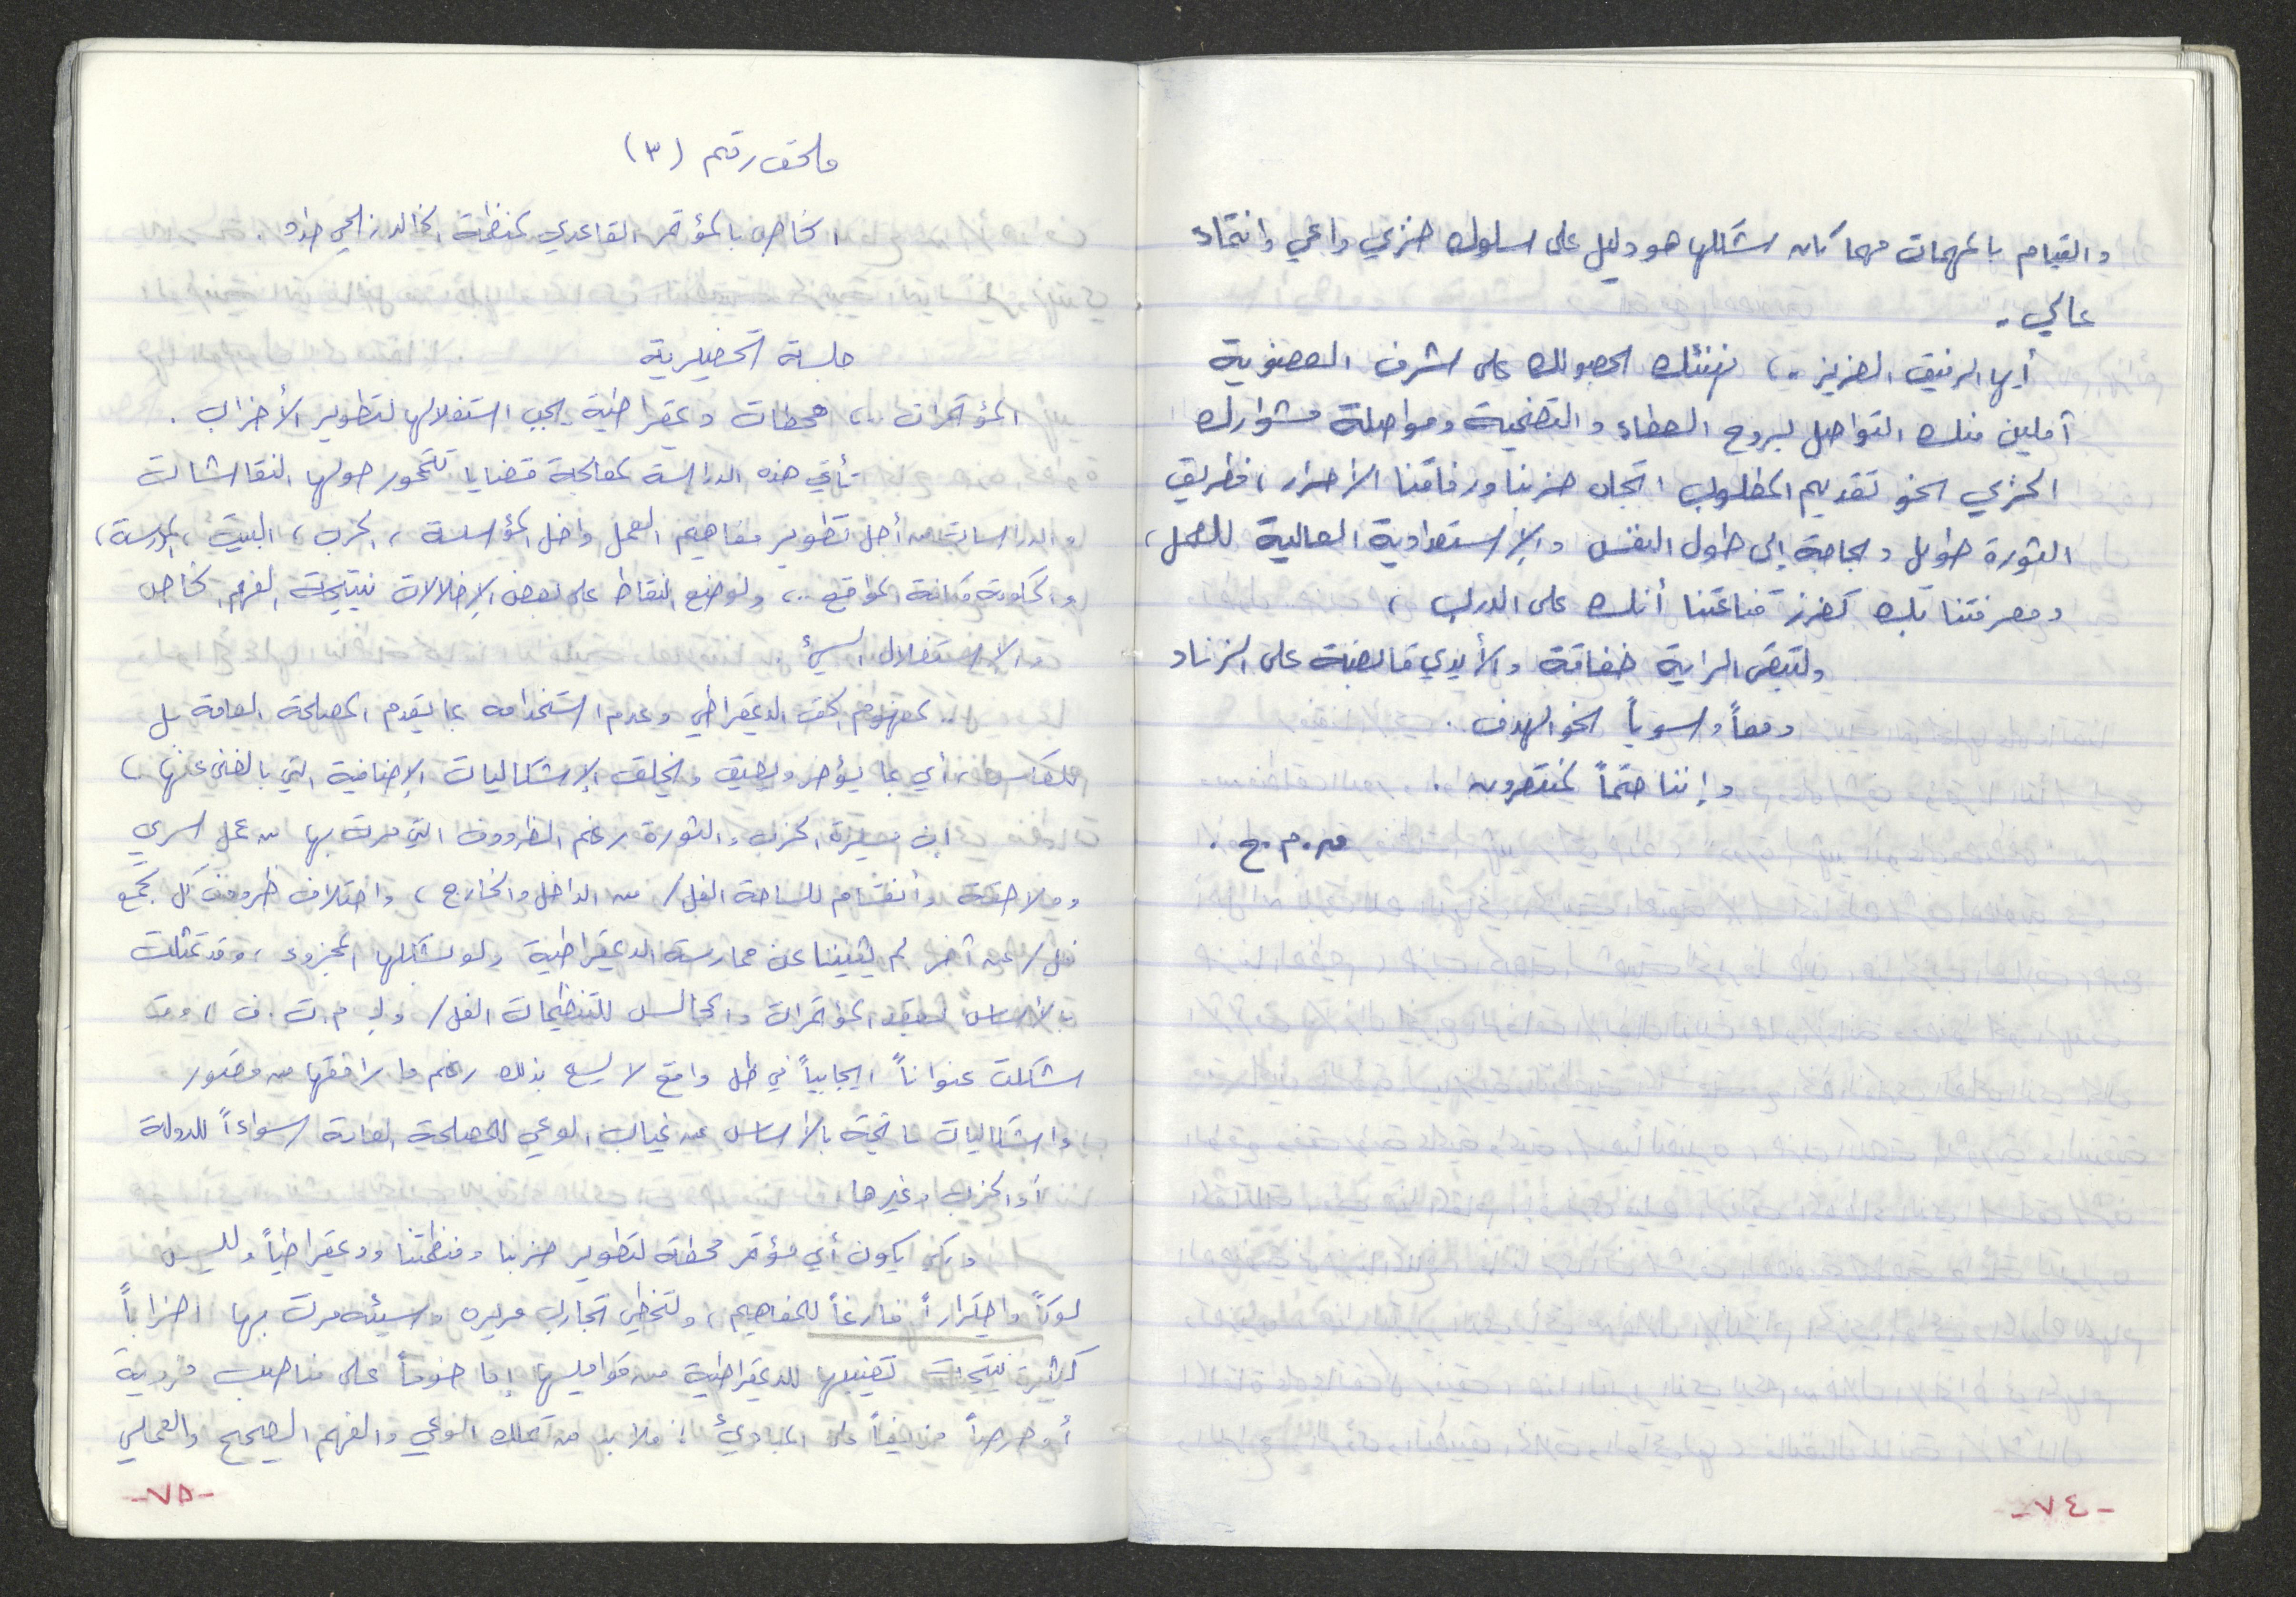 والقيام بالمهمات مهما كان شكلها هو دليل على سلوك حزبي واعي وانتماء
عالي .
أيها الرفيق العزيز .، نهنئك لحصولك على شرف العضوية
آملين منك التواصل بروح العطاء والتضحية ومواصلة مشوارك
الحزبي نحو تقديم المطلوب اتجاه حزبنا ورفاقنا الأحرار ، فطريق
الثورة طويل وبحاجة إلى طول النفس والإستعدادية العالية للعمل ،
ومعرفتنا بك تعزز قناعتنا أنك على الدرب ،
ولتبقى الراية خفاقة والأيدي قابضة على الزناد
ومعاً وسوياً نحو الهدف ..
وإننا حتماً لمنتصرون .
م . ح .
-٧٤-
ملحق رقم (٣)
الخاص بالمؤتمر القاعدي لمنظمة الخالد
جلسة تحضيرية
المؤتمرات ..، محطات ديمقراطية يجب استغلالها لتطوير الأحزاب .
تأتي هذه الدراسة لمعالجة قضايا تتمحور حولها النقاشات
والدراسات من أجل تطوير مفاهيم العمل داخل المؤسسة ، الحزب ، البيت ، المدرسة ،
ولمكانة المواقع ..، ولوضع النقاط على بعض الإخلالات نتيجة الفهم الخاص
والاستغلال السيئ .
.. لمفهوم الحق الديمقراطي وعدم استخدامه بما يخدم المصلحة العامة بل
العكس ، أي بما يؤخر ويعيق ويخلق الإشكاليات الإضافية التي بالغنى عنها ..
إن مسيرة الحزب والثورة رغم الظروف التي مرت بها من عمل سري
وملاحقة وأنقسام للساحة الفل/ من الداخل والخارج ، واختلاف ظروف كل تجمع
فل/ عن آخر لم يثنينا عن ممارسة الديمقراطية ولو بشكلها المجزوء ، وقد تمثلت
بالأساس لعقد المؤتمرات والمجالس للتنظيمات الفل/ ول م.ت.ف ، وقد
شكلت عنواناً ايجابياً في ظل واقع لا يسمح بذلك رغم ما رافقها من قصور
واشكاليات ناتجة بالأساس عن غياب الوعي للمصلحة العامة سواءاً للدولة
أو الحزب وغيرها
ولكي يكون أي مؤتمر محطة لتطوير حزبنا ومنظمتنا وديمقراطياً وليس
لوكاً واجتراراً فارغاً للمفاهيم ، ولتخطي تجارب مريره وسيئه مرت بها احزاباً
كثيرة نتيجة تغييبها للديمقراطية من قواميسها إما خوفاً على مناصب فردية
أو حرصاً مزيفاً على المبادئ ؛ فلا بد من تملك الوعي والفهم الصحيح والعملي
-٧٥-